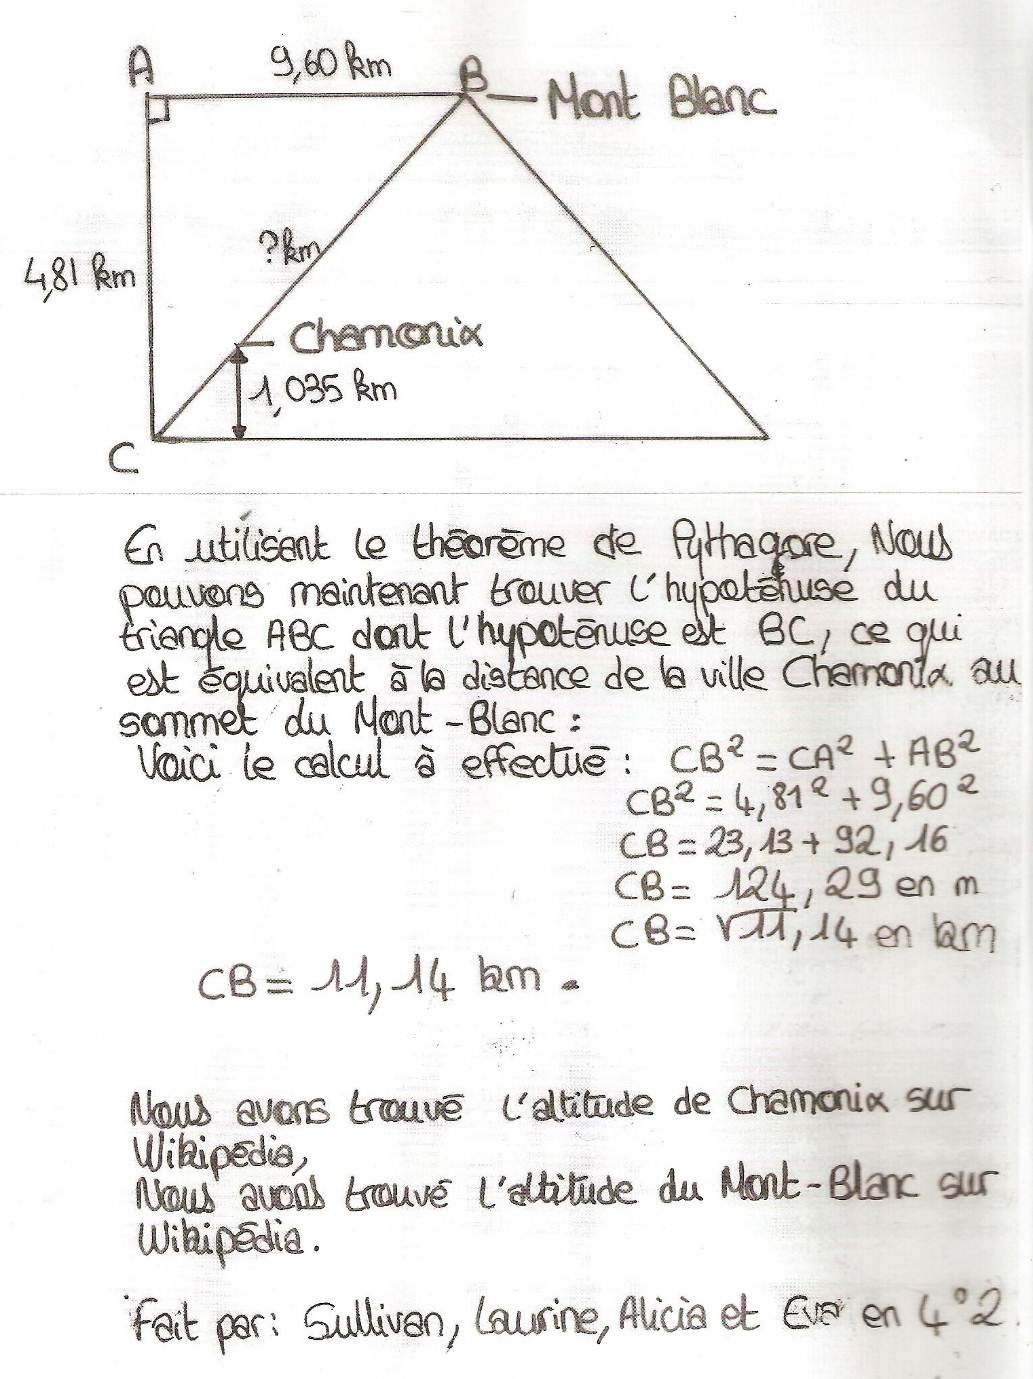 A
9,60 km
B
Mont Blanc
?km
4,81 km
Chamonix
1,035 km
C
En utilisant le théorème de Pythagore, Nous
pouvons maintenant trouver l'hypoténuse du
triangle ABC dont l'hypoténuse est BC, ce qui
est équivalent à la distance de la ville Chamonix au
sommet du Mont-Blanc :
Voici le calcul à effectué : CB² = CA² + AB²
CB² = 4,81² + 9,60²
CB = 23,13 + 92,16
CB = 124,29 en m
CB = √11,14 en km
CB = 11,14 km.
Nous avons trouvé l'altitude de Chamonix sur
Wikipédia,
Nous avons trouvé l'altitude du Mont-Blanc sur
Wikipédia.
Fait par : Sullivan, Laurine, Alicia et Eva en 4°2.